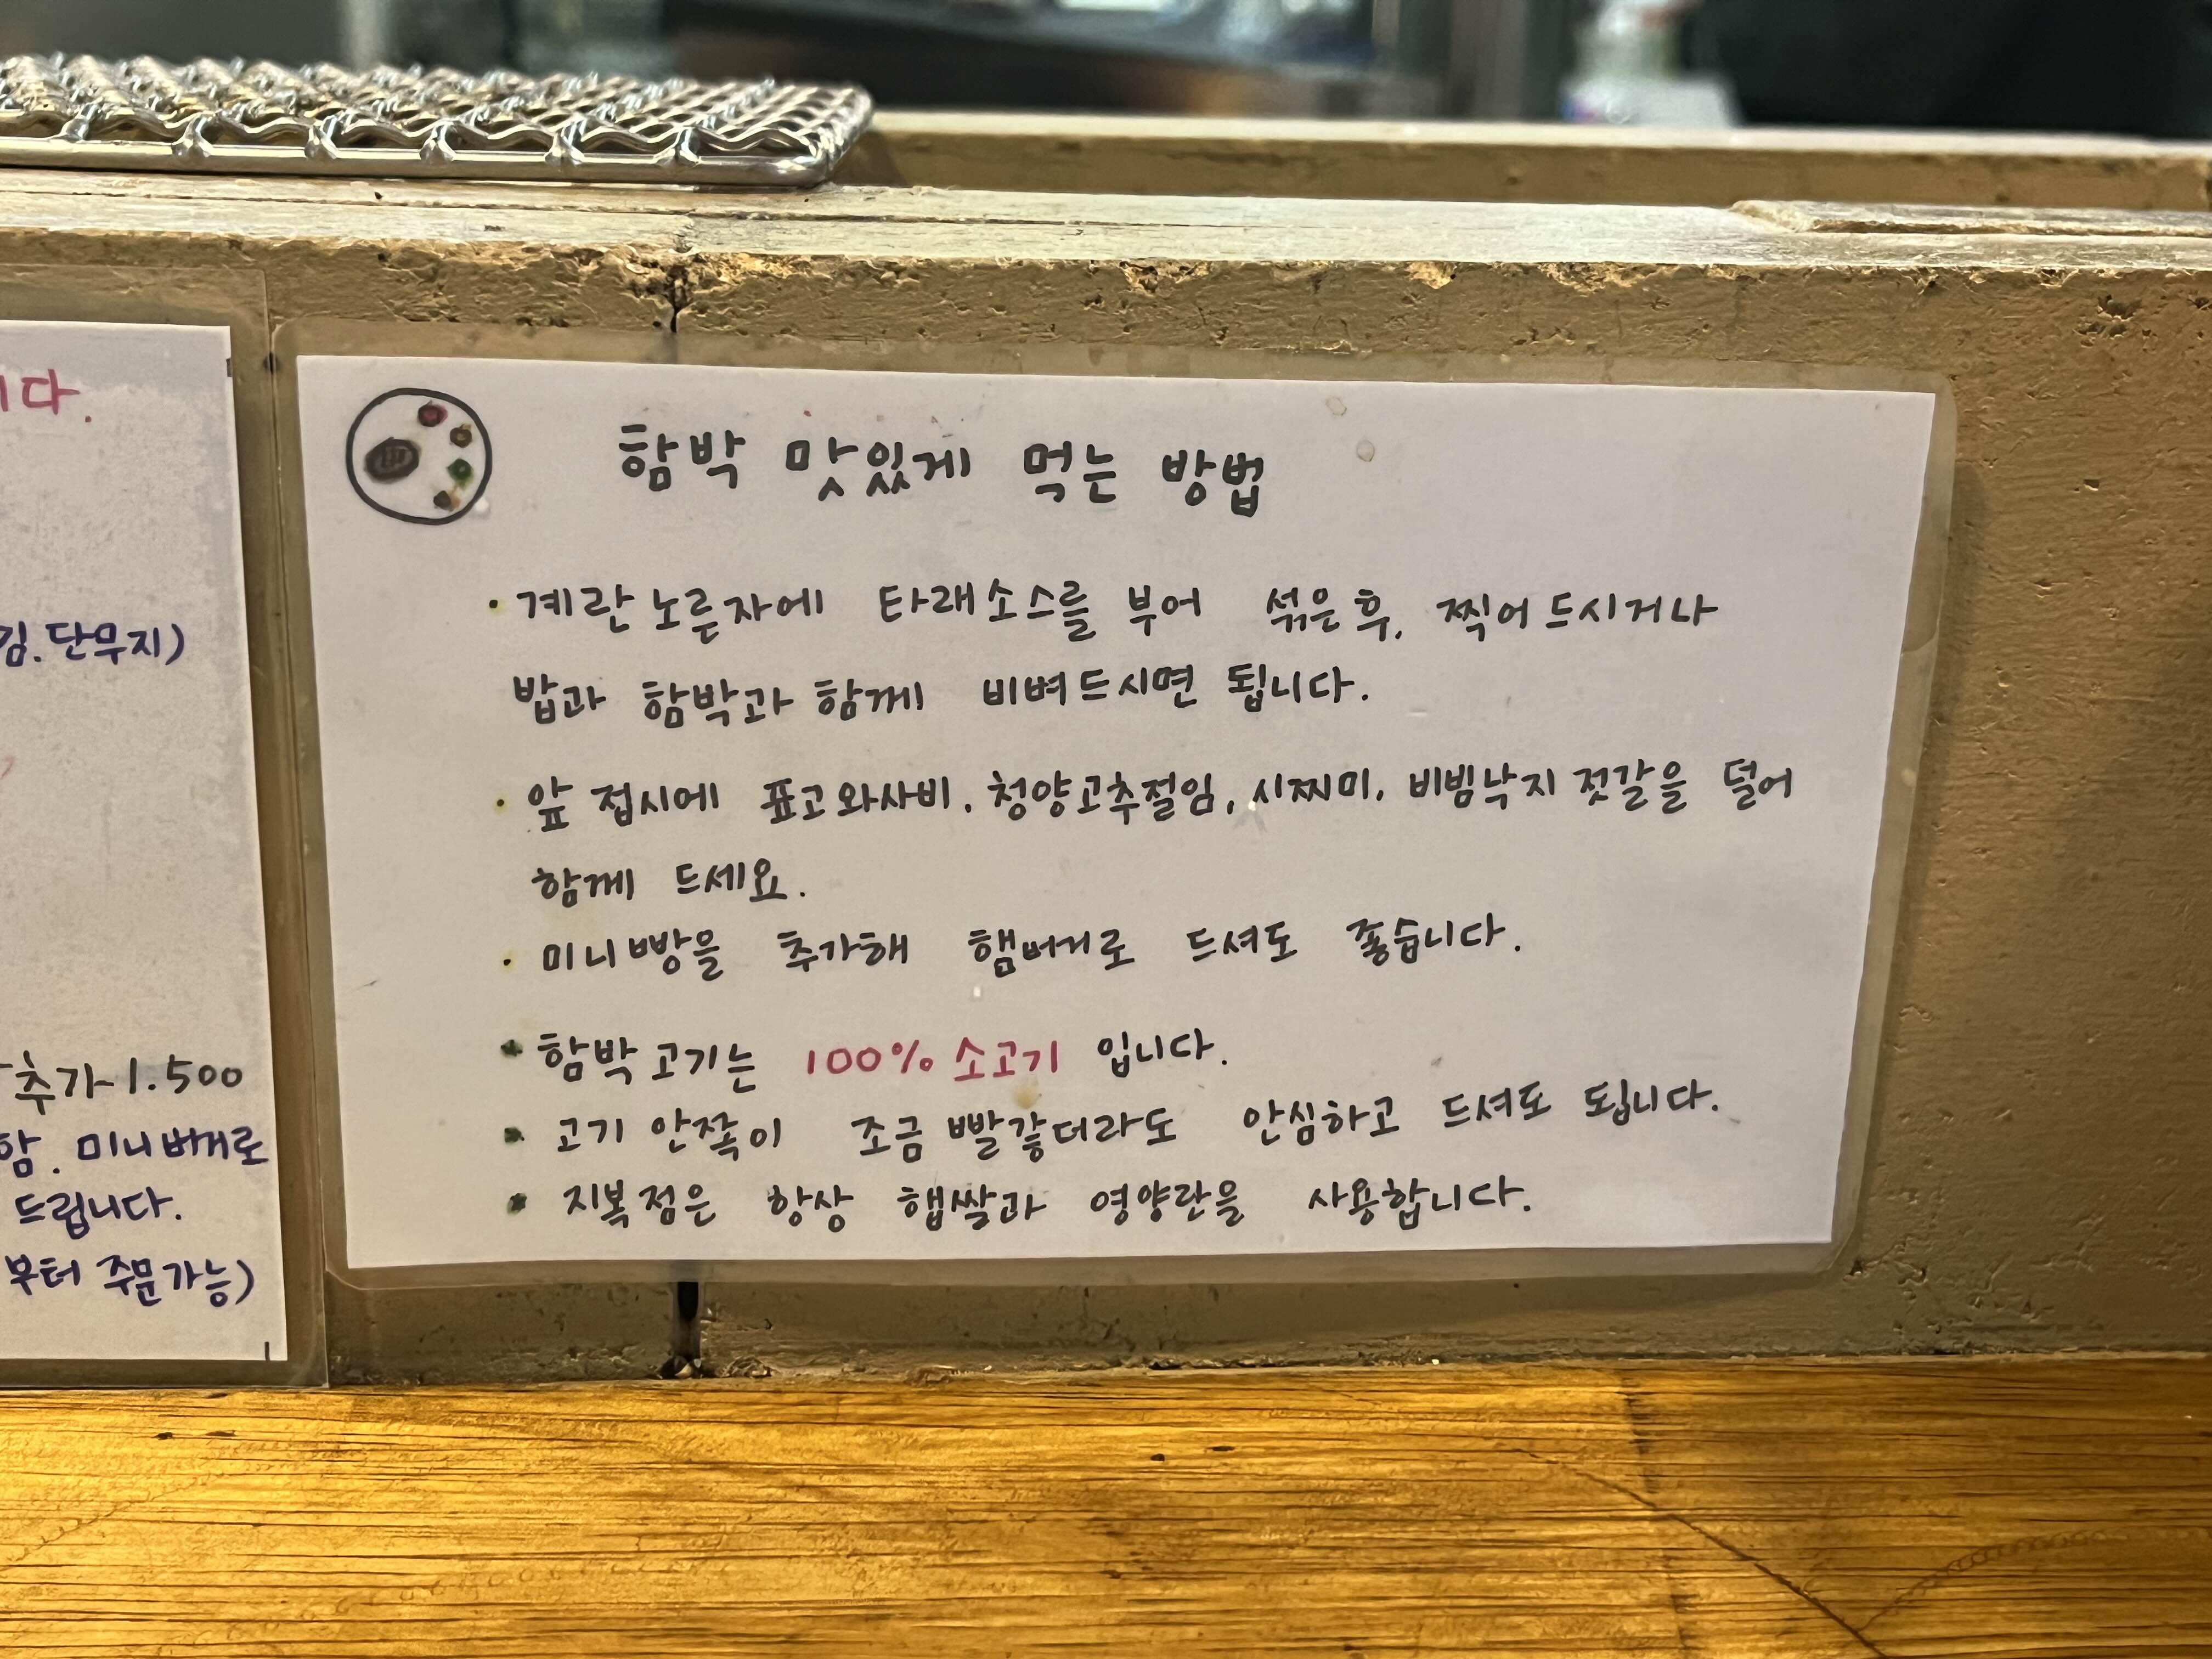 니다.
김.단무지)
추가 1.500
함. 미니버거로
드립니다.
부터 주문가능)
함박 맛있게 먹는 방법
· 계란노른자에 타래소스를 부어 섞은후, 찍어드시거나
밥과 함박과 함께 비벼드시면 됩니다.
· 앞 접시에 표고와사비, 청양고추절임, 시찌미, 비빔낙지 젓갈을 덜어
함께 드세요.
· 미니빵을 추가해 햄버거로 드셔도 좋습니다.
· 함박고기는 100% 소고기 입니다.
· 고기 안쪽이 조금 빨갛더라도 안심하고 드셔도 됩니다.
· 지복점은 항상 햅쌀과 영양란을 사용합니다.